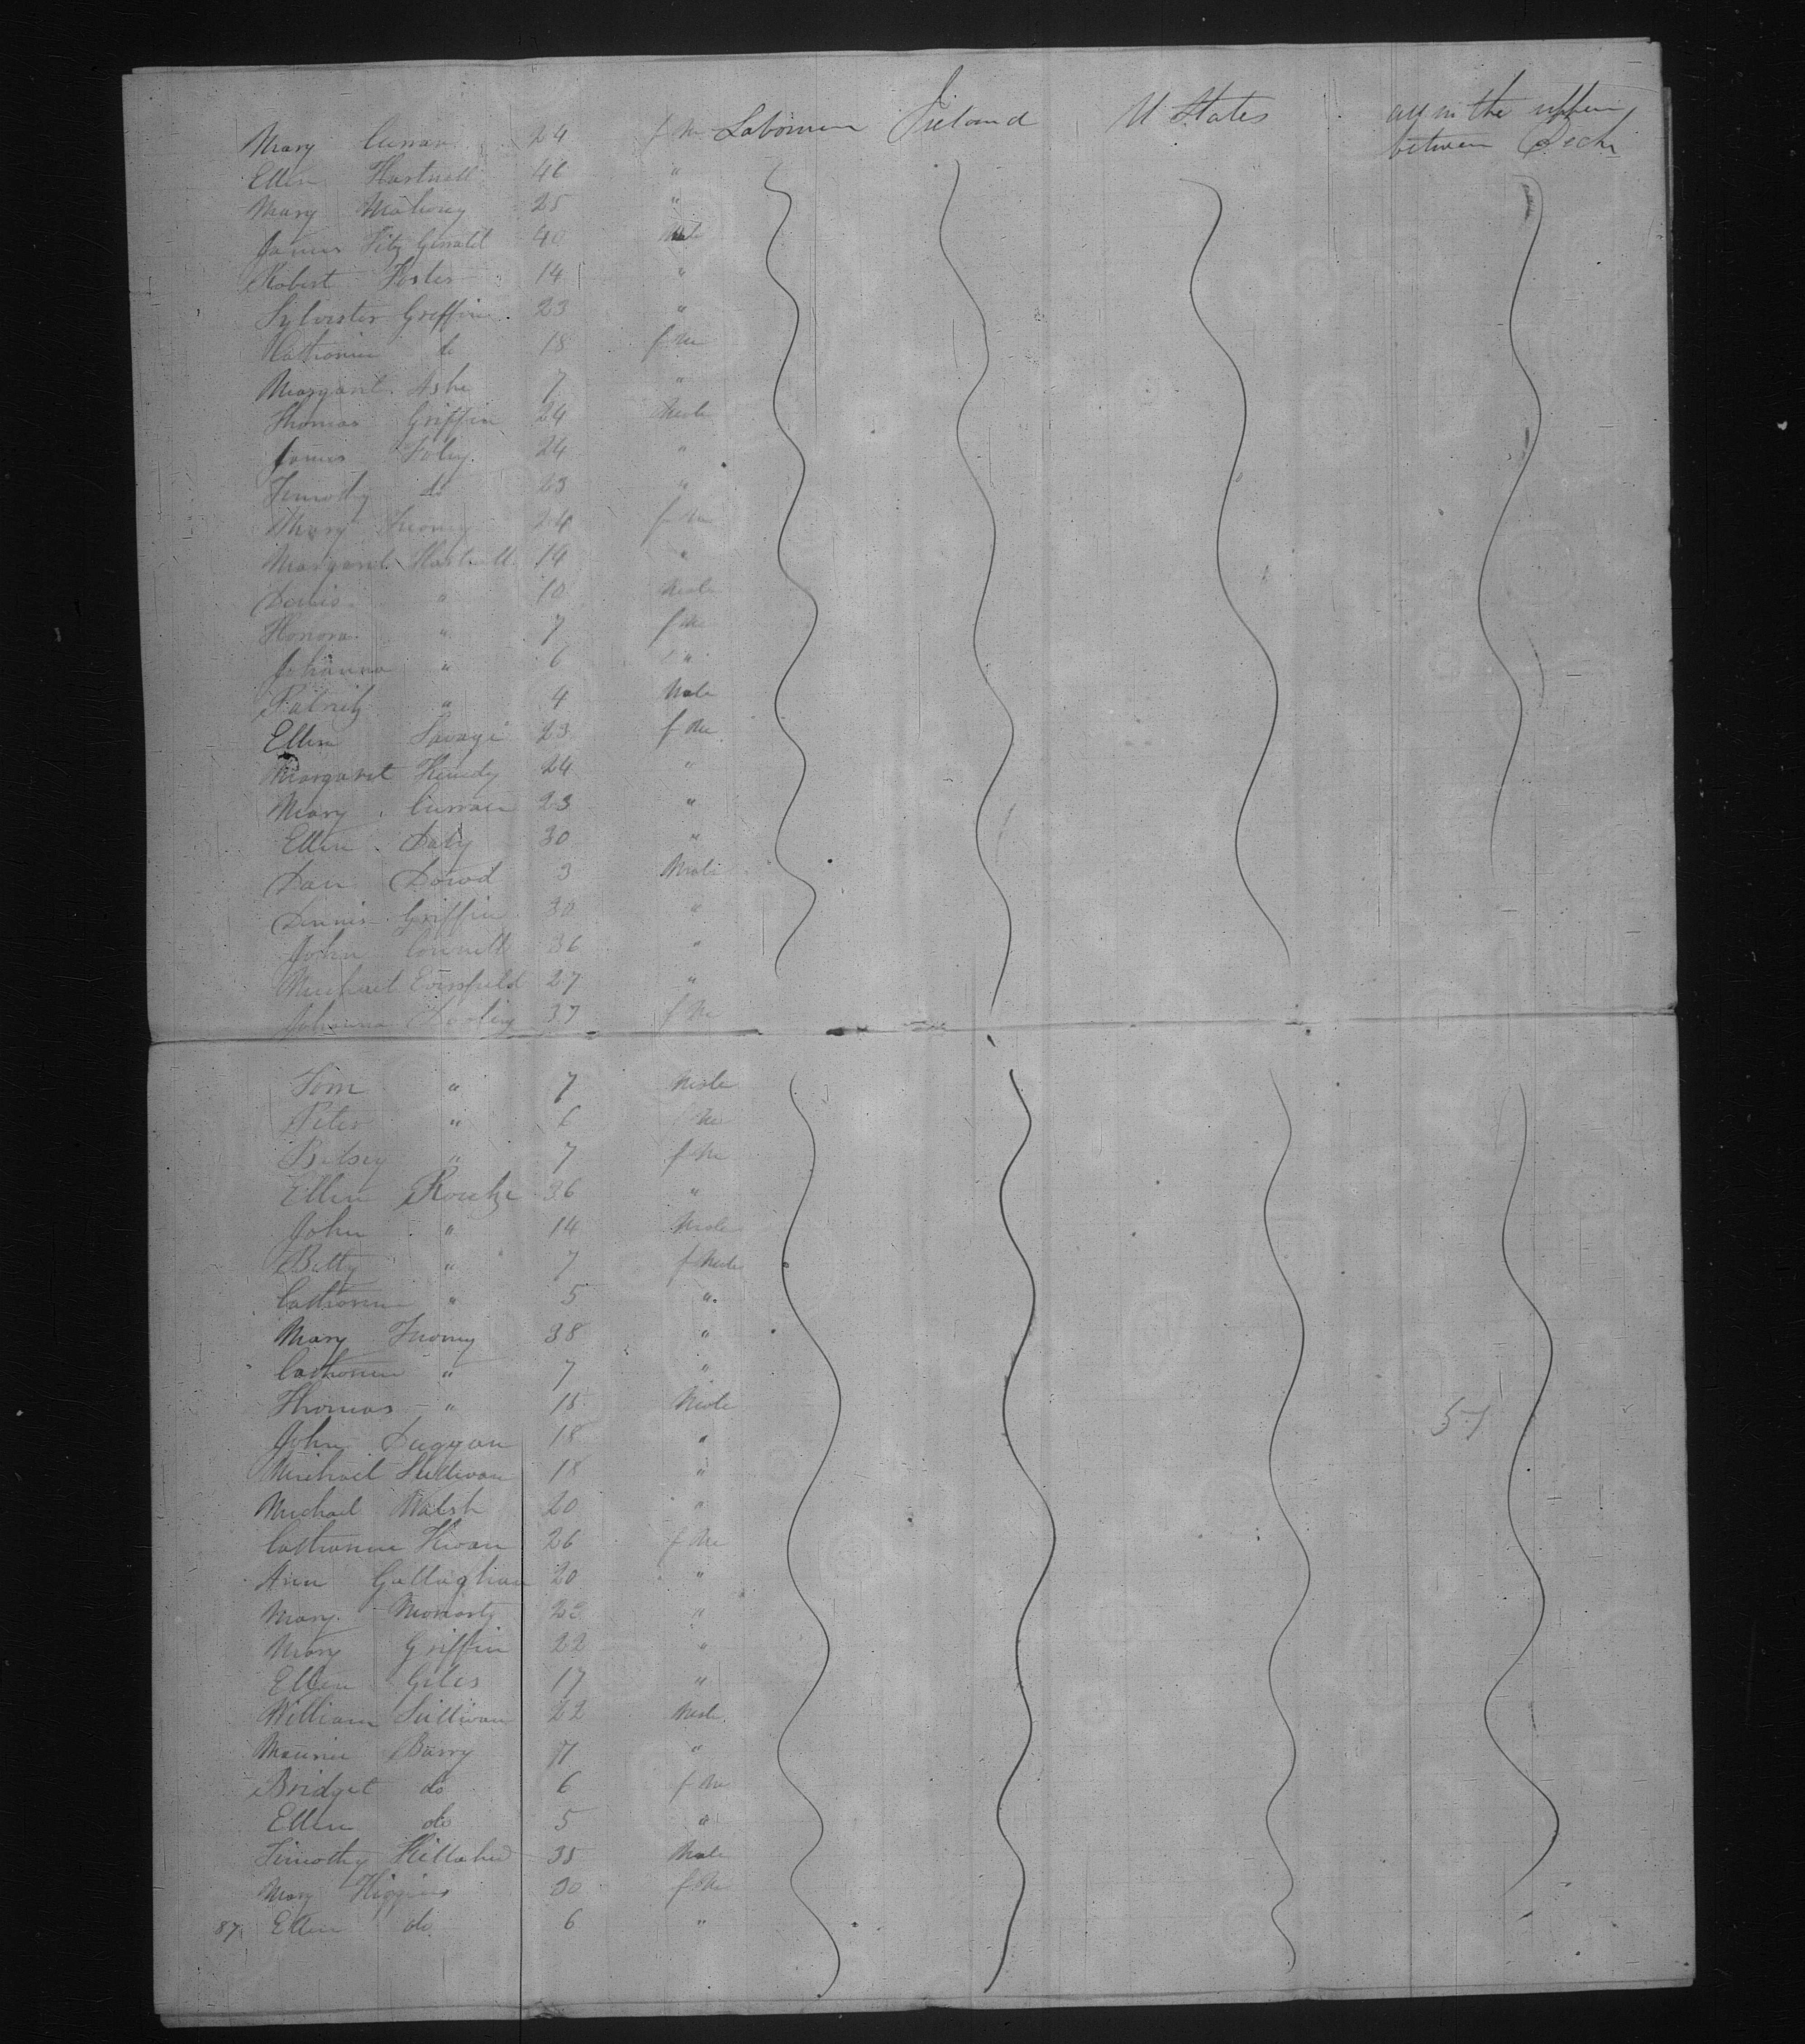 Mary Curran 24 f Me Labourer Ireland U States all in the upper
between Decks
Ellen Hartnell 46 "
Mary Mahony 25 "
James Fitz Gerrald 40 Male
Robert Foster 14 "
Sylvester Griffin 23 "
Catherine do 18 f Me
Margaret Ashe 7 "
Thomas Griffin 24 Male
James Foley 24 "
Timothy do 23 "
Mary Twomy 24 f Me
Margaret Hartnell 14 "
Denis " 10 Male
Honora " 7 f Me
Johanna " 6 "
Patrick " 4 Male
Ellen Savage 23 f Me
Margaret Kennedy 24 "
Mary Curran 23 "
Ellen Daly 30 "
Dan Dowd 3 Male
Dennis Griffin 30 "
John Connell 36 "
Michael 27 "
Johanna 37 f Me
Tom " 7 Male
Peter " 6 Me
Betsey " 7 f Me
Ellen Rourke 36 "
John " 14 Male
Betty " 7 f Male
Catherine " 5 "
Mary Twomy 38 "
Catherine " 7 "
Thomas " 18 Male
John Duggan 18 "
Michael Sullivan 18 "
Michael Walsh 20 "
Catherine Kwan 26 f Me
Ann Gallaghan 20 "
Mary Moriarty 22 "
Mary Griffin 22 "
Ellen Giles 17 "
William Sullivan 22 Male
Maurice Barry 7 "
Bridget do 6 f Me
Ellen do 5 "
Timothy Killaher 35 Male
Mary Higgins 30 f Me
87 Ellen do 6 "